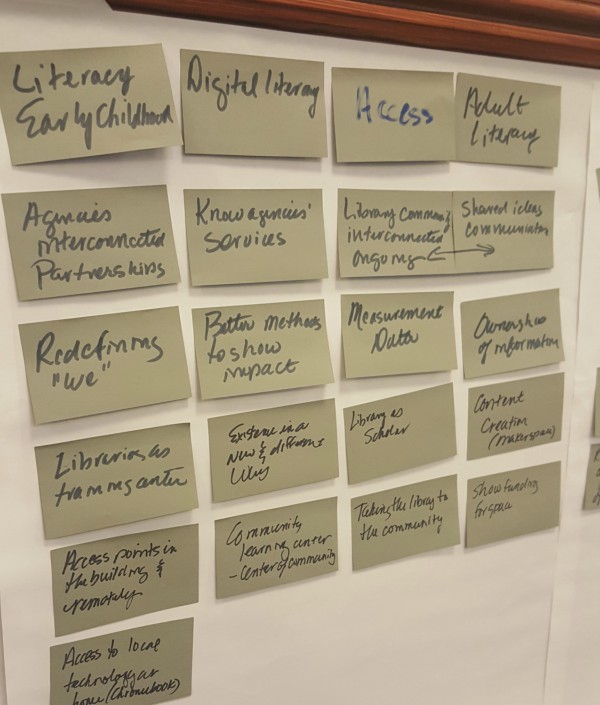 Literacy
Early Childhood
Digital literacy
Access
Adult
Literacy
Agencies
interconnected
Partnerships
Know agencies'
services
Library Community
interconnected
ongoing
Shared ideas
communities
Redefining
"we"
Better methods
to show
impact
Measurement
Data
Ownership
of information
Libraries as
training center
Existence in a
New & different
Way
Library as
Scholar
Content
Creation
(makerspace)
Access points in
the building &
remotely
Community
learning center
- Center of community
Taking the library to
the community
Show funding
for space
Access to local
technology at
home (Chromebook)